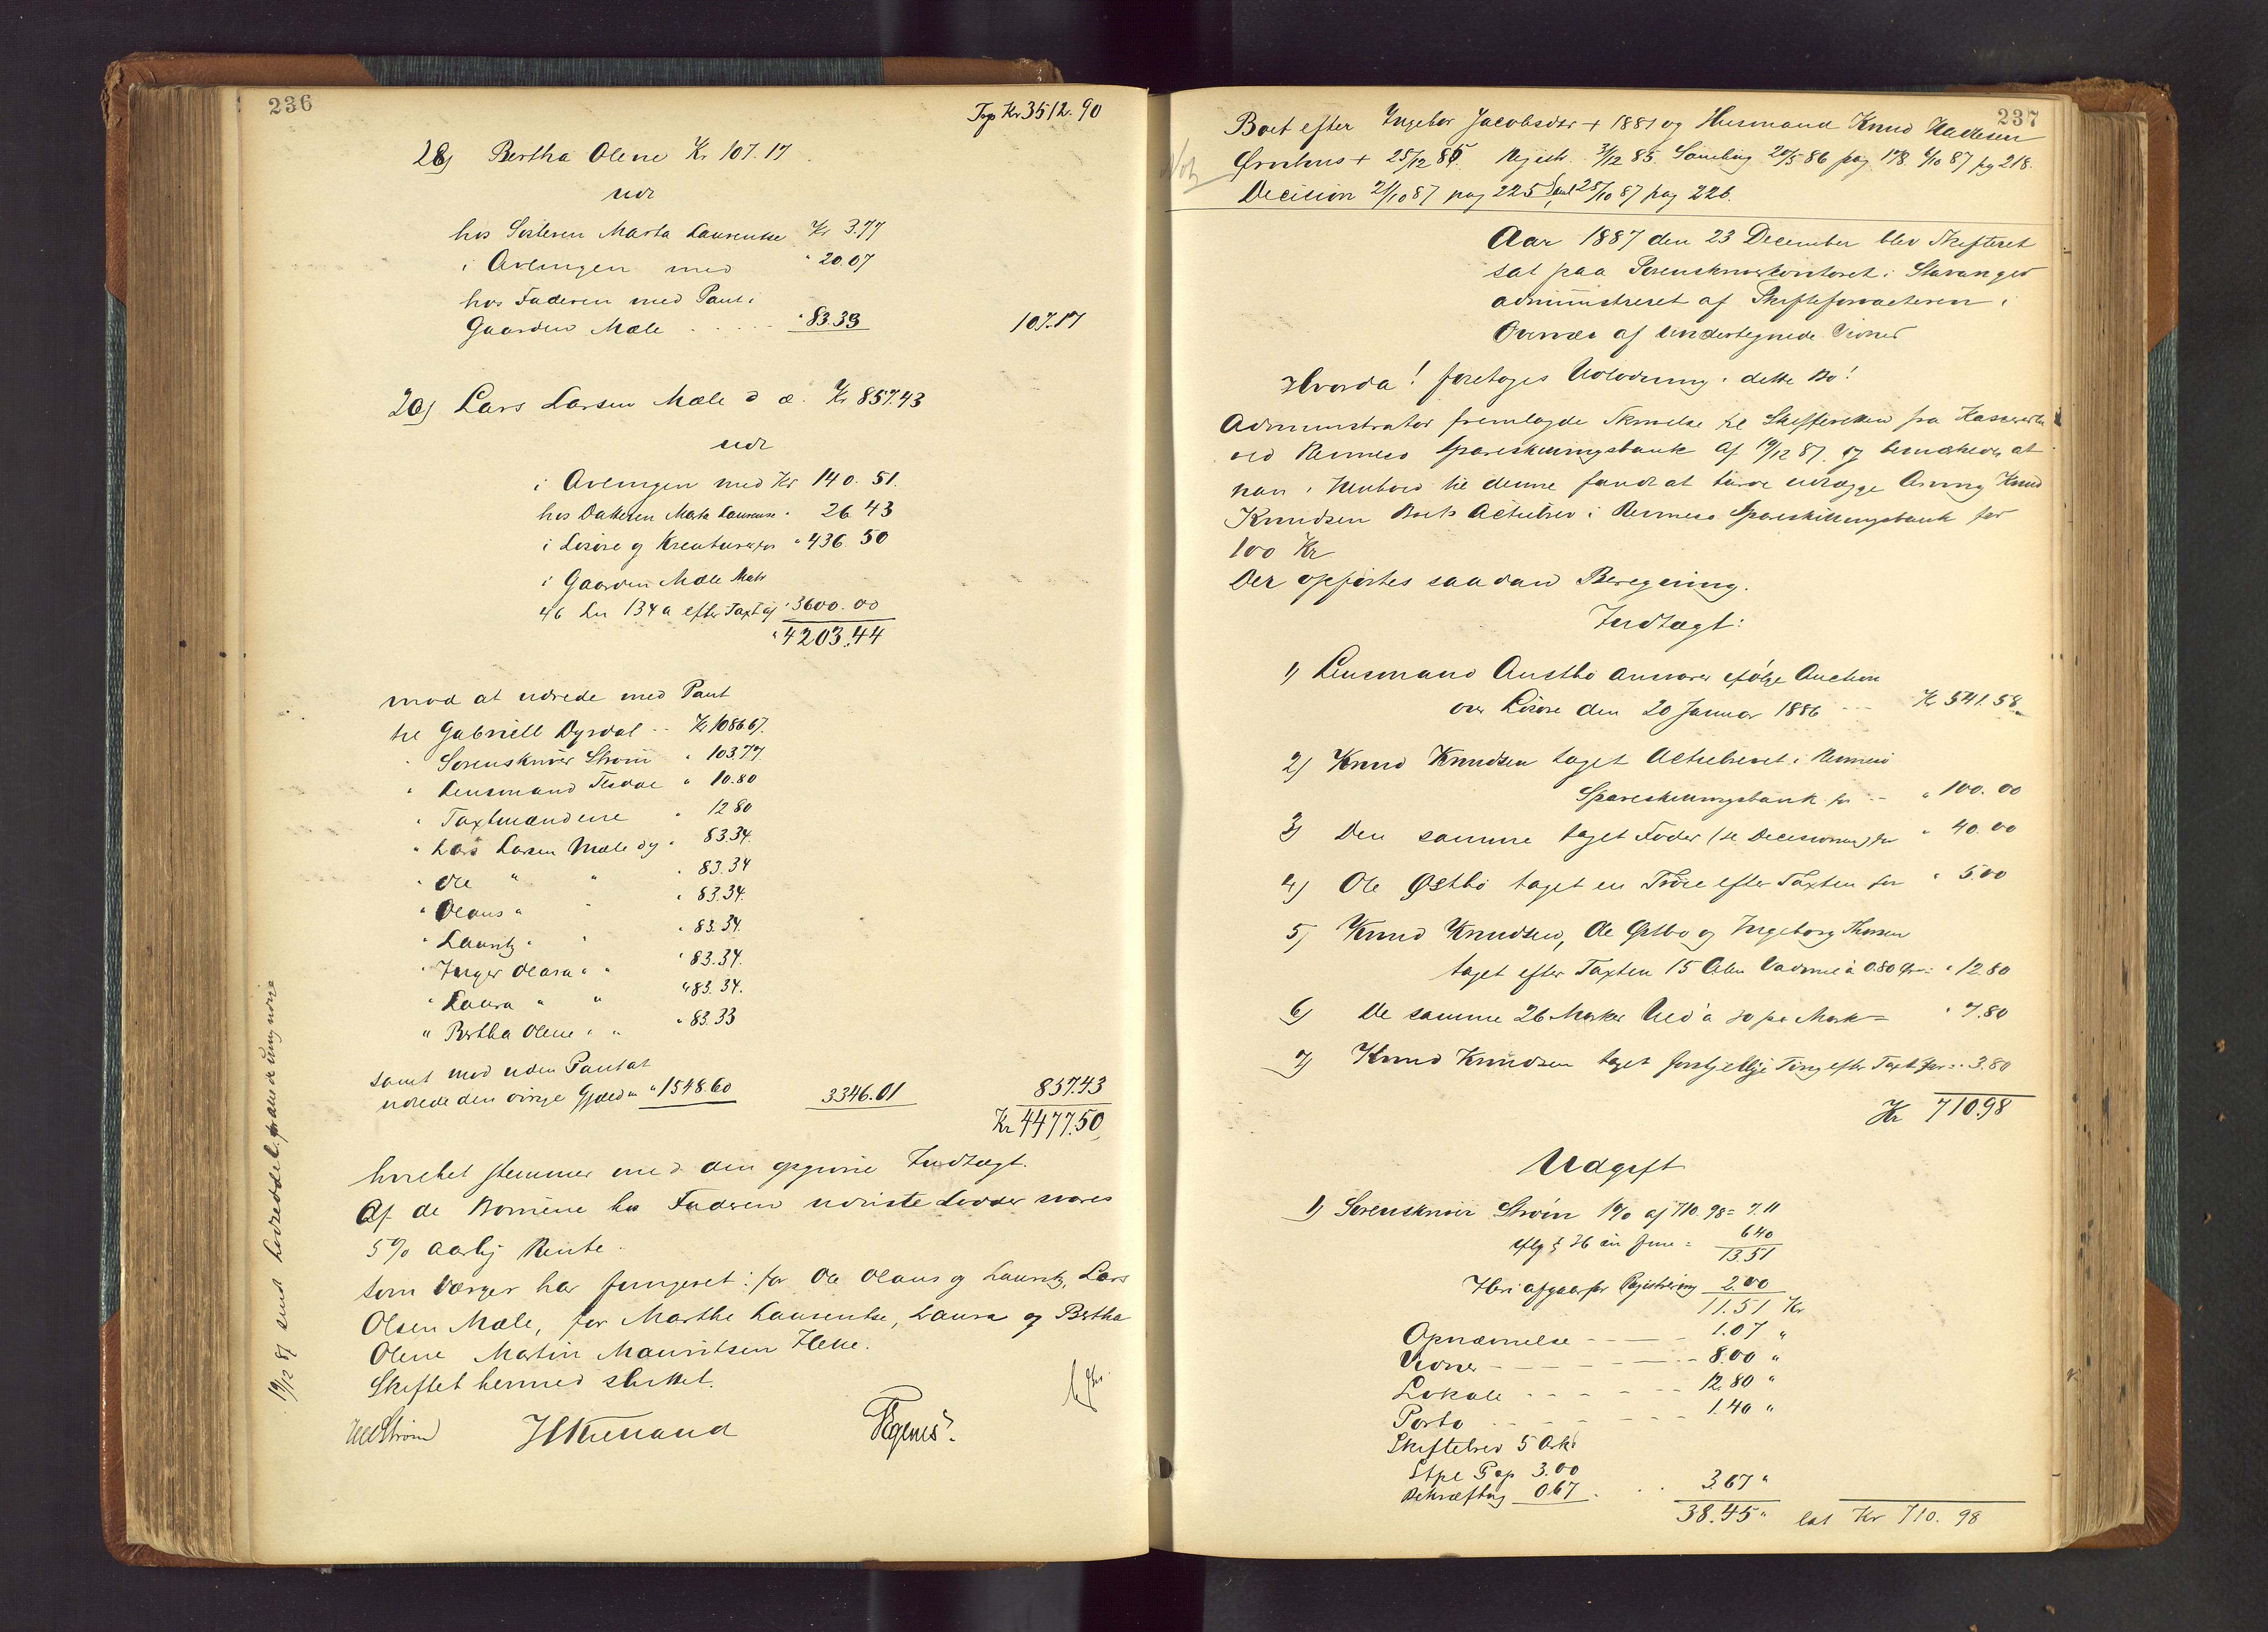 236
Trp Kr 3512.90
28) Bertha Olene Kr 107.17
udl
hos Søsteren Marta Laurentse Kr 3.77
i Avlingen med " 20.07
hos Faderen med Pant i
Gaarden Mæle . . . . . " 83.33 107.17
29) Lars Larsen Mæle d æ. Kr 857.43
udl
i Avlingen med Kr 140.51.
hos Datteren Marta Laurense " 26 43
i Løsøre og Kreaturer for " 436.50
i Gaarden Mæle Matr
46 Ln 134a efter Taxt af " 3600.00
" 4203.44
mod at udrede med Pant
til Gabriell Dysdal .. Kr 1086 67.
" Sorenskriver Strøm " 103.77.
" Lensmand " 10.80
" Taxtmændene " 12 80
" Lars Larsen Mæle dy " 83.34.
" Ole " " " 83.34
" Olaus " " " 83.34.
" Lauritz " " " 83.34.
" Inger Olava " " " 83.34.
" Laura " " " 83.34.
" Bertha Olene " " " 83.33
samt mod uden Pant at
udrede den øvrige Gjæld m " 1548.60 3346.01 857.43
Kr 4477.50
hvilket stemmer med den opgivne Indtægt.
Af de Børnene hos Faderen udviste Lodder svares
5% aarlig Rente.
Som Værger har fungeret: for Ole Olaus og Lauritz, Lars
Olsen Mæle, for Marthe Laurentse, Laura og Bertha
Olene Martin Mauritsen Helle.
Skiftet hermed sluttet.
Strøm
19/12 87 sendt
237
Boet efter Ingebor Jacobsdtr + 1881 og Husmand Knud
+ 25/12 85. Regist. 31/12 85. Samling 20/5 86 pag 178. 6/10 87 pg 218.
Decision 21/10 87 pag 225 Saml 25/10 87 pag 226.
Aar 1887 den 23 December blev Skifteret
sat paa Sorenskriverkontoret i Stavanger
administreret af Skifteforvalteren i
Overvær af undertegnede Vidner
Hvorda! foretoges Udlodning i dette Bo!
Administrator fremlagde Skrivelse til Skifteretten fra Kassereren
ved Rennesø Spareskillingsbank af 19/12 87. og bemærkede, at
han i Henhold til denne fandt at turde udlægge Arving Knud
Knudsen Boets Actiebrev i Rennesø Spareskillingsbank for
100 Kr
Der opførtes saadan Beregning.
Indtægt:
1) Lensmand Austbø ansvarer ifølge Auction
over Løsøre den 20 Januar 1886 ... Kr 541.58
2) Knud Knudsen taget Actiebrevet i Rennesø
Spareskillingsbank for .. " 100.00
3) Den samme taget Foder (se Decisionen) for " 40.00
4) Ole Østbø taget en Trøie efter Taxten for " 5.00
5) Knud Knudsen, Ole Østbø og Ingeborg Thorsen
taget efter Taxten 15 Alen Vadmel à 0.80 Øre = " 12.80
6) De samme 26 Marker Uld à 30 pr Mark = " 7.80
7) Knud Knudsen taget forskjellige Ting efter Taxt for = " 3.80
Kr 710.98
Udgift
1) Sorenskriver Strøm 1% af 710.98 = 7.11
iflg § 26 = 6 40
13.51
Heri afgaar for Registrering 2.00
11.51 Kr
Opnævnelse - - - - 1.07 "
Vidner - - - - - 8.00 "
Lokale - - - - - 12.80 "
Porto - - - - - 1.40 "
Skiftebrev 5 Ark
Stpl Pap 3.00
Bekræftelse 0.67 . . . 3.67 "
38.45 " lat Kr 710.98